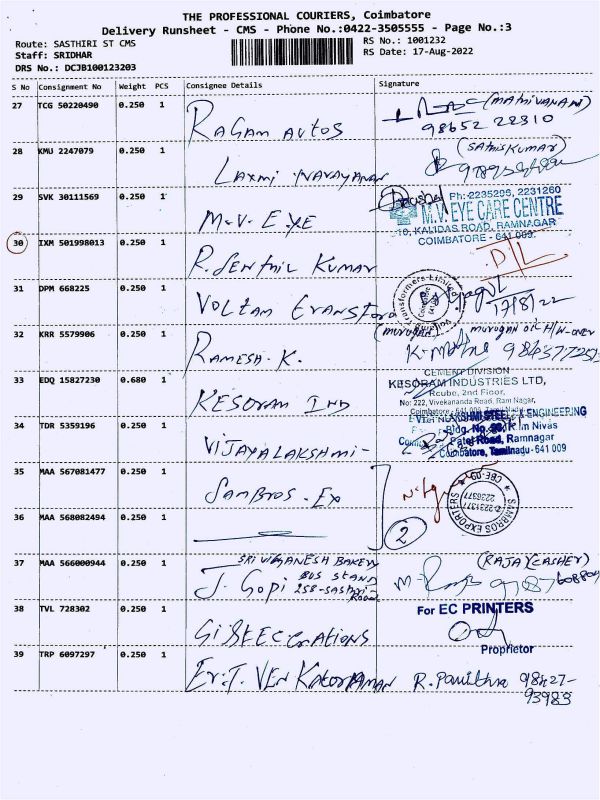 THE PROFESSIONAL COURIERS, Coimbatore
Delivery Runsheet - CMS - Phone No.:0422-3505555 - Page No.:3
Route: SASTHIRI ST CMS
RS No.: 1001232
Staff: SRIDHAR
RS Date: 17-Aug-2022
DRS No.: DCJB100123203
S No Consignment No Weight PCS Consignee Details Signature
27 TCG 50220490 0.250 1 RAGAM AUTOS (MATHIVANAN)
98652 22310
28 KMU 2247079 0.250 1 LAXMI NARAYANAN (SATHISKUMAR)
29 SVK 30111569 0.250 1 M.V. EYE
Ph: 2235295, 2231260
M.V. EYE CARE CENTRE
10, KALIDAS ROAD, RAMNAGAR
COIMBATORE - 641 009.
30 IXM 501998013 0.250 1 R. SENTHIL KUMAR D/L
31 DPM 668225 0.250 1 VOLTAM
Transformers Limited
17/8/22
32 KRR 5579906 0.250 1 RAMESH. K.
(murugan)
33 EDQ 15827230 0.680 1 KESORAM IND
CEMENT DIVISION
KESORAM INDUSTRIES LTD,
2nd Floor,
No: 222, Vivekananda Road, Ram Nagar,
34 TDR 5359196 0.250 1 VIJAYALAKSHMI -
LAKSHMI STEEL & ENGINEERING
Bldg. No. Nivas
Patel Road, Ramnagar
Coimbatore, Tamilnadu - 641 009
35 MAA 567081477 0.250 1 SAMBROS - EX
SAMBROS EXPORTERS
CBE-09
36 MAA 568082494 0.250 1 2
37 MAA 566000944 0.250 1 J. GOPI
SRI VIGANESH BAKERY
BUS STAND
258-SASTRI ROAD
(RAJA (CASHER)
38 TVL 728302 0.250 1
For EC PRINTERS
Proprietor
39 TRP 6097297 0.250 1 R. Pavithra 98427-
93983